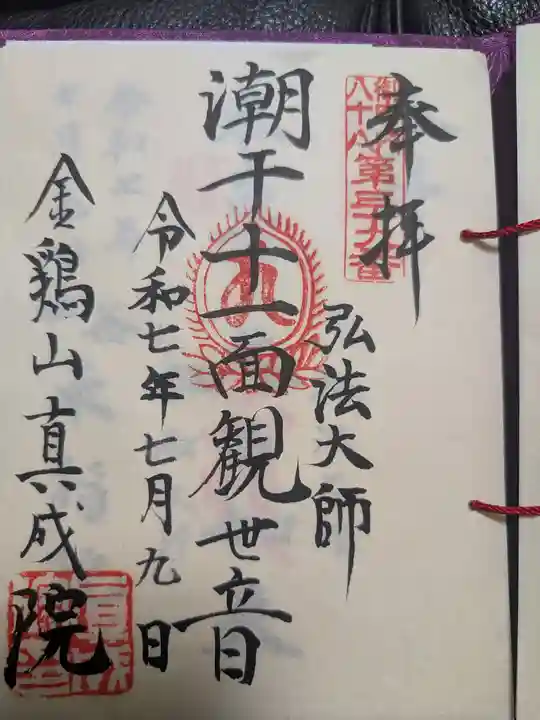 奉拝
八十八
第三十九番
弘法大師
潮干十一面観世音
令和七年七月九日
金鶏山真成院